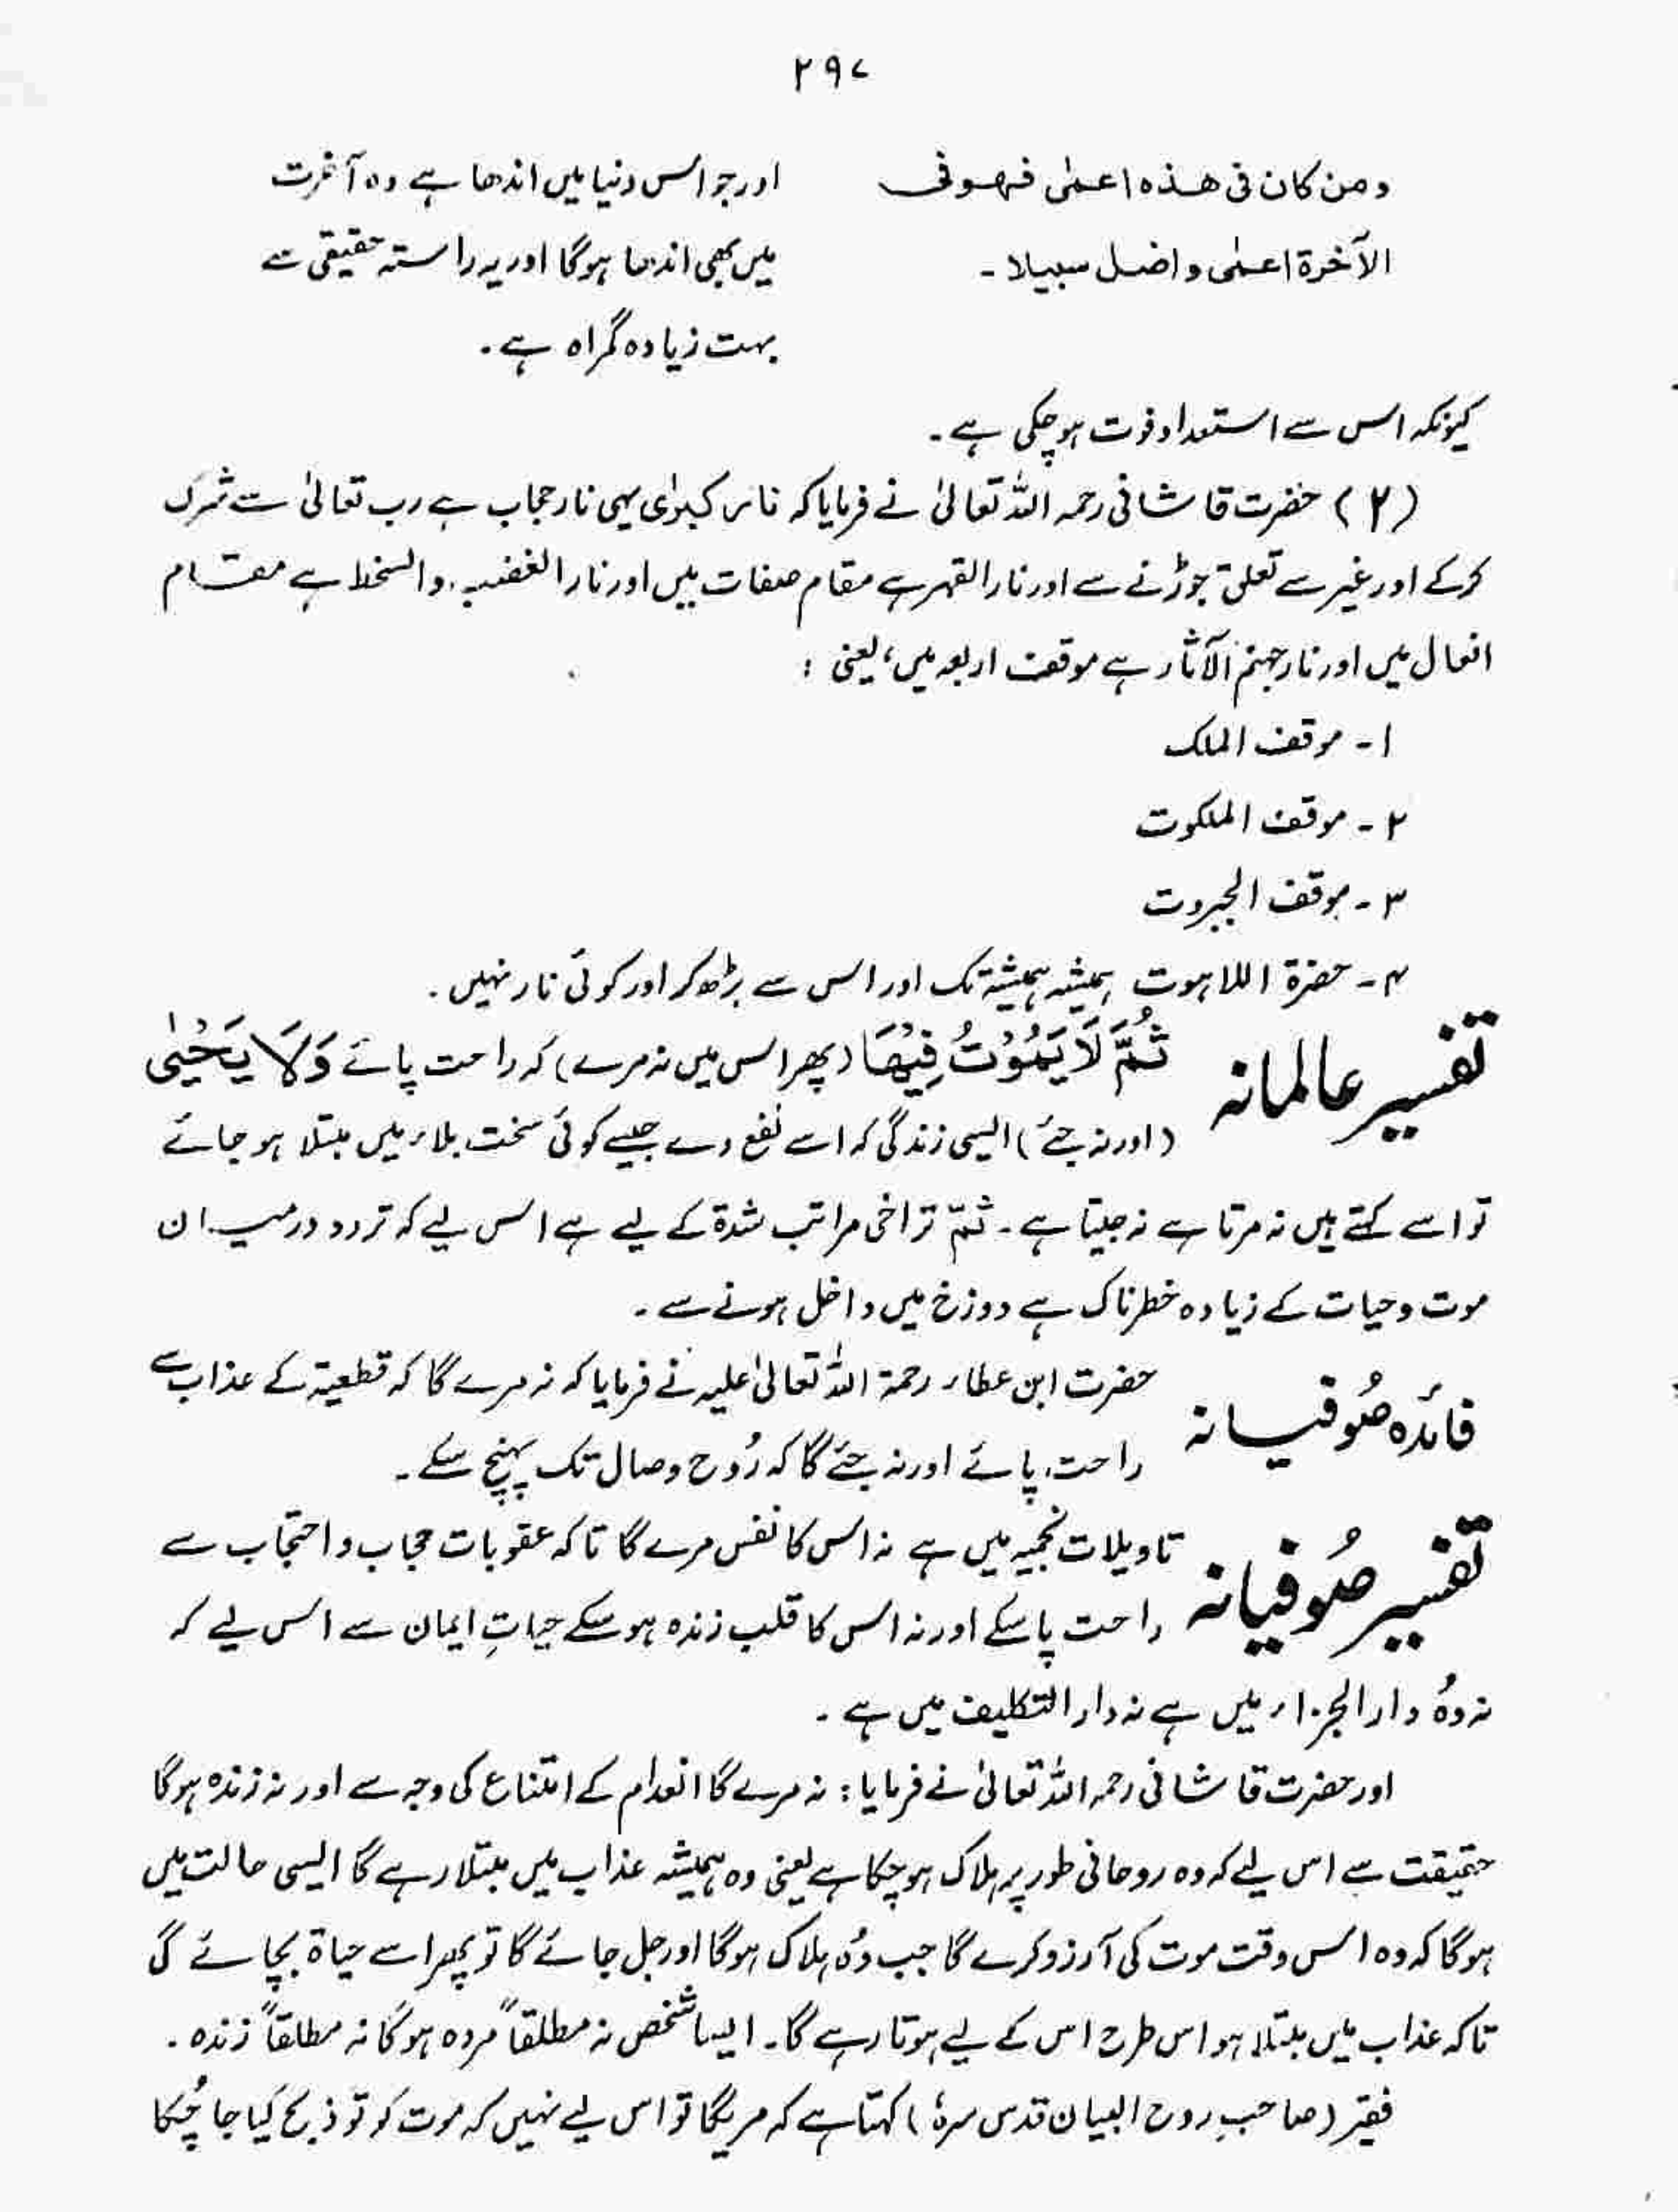 ۲۹۷
ومن کان فی ھذہ اعمٰی فھو فی
الآخرة اعمٰی واضل سبیلا ۔
اور جو اس دنیا میں اندھا ہے وہ آخرت
میں بھی اندھا ہوگا اور یہ راستہ حقیقی سے
بہت زیادہ گمراہ ہے ۔
کیونکہ اس سے استعداد فوت ہو چکی ہے ۔
(۲) حضرت قاشانی رحمہ اللہ تعالیٰ نے فرمایا کہ نار کبرٰی یہی نار حجاب ہے رب تعالیٰ سے شرک
کرکے اور غیر سے تعلق جوڑنے سے اور نار القہر ہے مقام صفات میں اور نار الغضب والسخط ہے مقام
افعال میں اور نار جہنم الآثار ہے موقف اربعہ میں، یعنی :
۱ - موقف الملک
۲ - موقف الملکوت
۳ - موقف الجبروت
۴ - حضرۃ اللاہوت ہمیشہ ہمیشہ تک اور اس سے بڑھ کر اور کوئی نار نہیں ۔
تفسیر عالمانہ ثُمَّ لَا يَمُوْتُ فِيْهَا (پھر اس میں نہ مرے) کہ راحت پائے وَلَا يَحْيٰى
(اور نہ جئے) ایسی زندگی کہ اسے نفع دے جیسے کوئی سخت بلاء میں مبتلا ہو جائے
تو اسے کہتے ہیں نہ مرتا ہے نہ جیتا ہے ۔ ثمّ تراخی مراتب شدۃ کے لیے ہے اس لیے کہ تردد درمیان
موت و حیات کے زیادہ خطرناک ہے دوزخ میں داخل ہونے سے ۔
فائدہ صُوفیانہ حضرت ابن عطاء رحمۃ اللہ تعالیٰ علیہ نے فرمایا کہ نہ مرے گا کہ قطعیۃ کے عذاب سے
راحت پائے اور نہ جئے گا کہ رُوح وصال تک پہنچ سکے ۔
تفسیر صُوفیانہ تاویلات نجمیہ میں ہے نہ اس کا نفس مرے گا تاکہ عقوبات حجاب و احتجاب سے
راحت پا سکے اور نہ اس کا قلب زندہ ہو سکے حیاتِ ایمان سے اس لیے کہ
نہ وُہ دار الجزاء میں ہے نہ دار التکلیف میں ہے ۔
اور حضرت قاشانی رحمہ اللہ تعالیٰ نے فرمایا : نہ مرے گا انعدام کے امتناع کی وجہ سے اور نہ زندہ ہوگا
حقیقت سے اس لیے کہ وہ روحانی طور پر ہلاک ہو چکا ہے یعنی وہ ہمیشہ عذاب میں مبتلا رہے گا ایسی حالت میں
ہوگا کہ وہ اس وقت موت کی آرزو کرے گا جب وُہ ہلاک ہوگا اور جل جائے گا تو پھر اسے حیاۃ بچائے گی
تاکہ عذاب میں مبتلا ہو اس طرح اس کے لیے ہوتا رہے گا۔ ایسا شخص نہ مطلقاً مردہ ہوگا نہ مطلقاً زندہ ۔
فقیر (صاحبِ روح البیان قدس سرہٗ) کہتا ہے کہ مریگا تو اس لیے نہیں کہ موت کو تو ذبح کیا جا چُکا